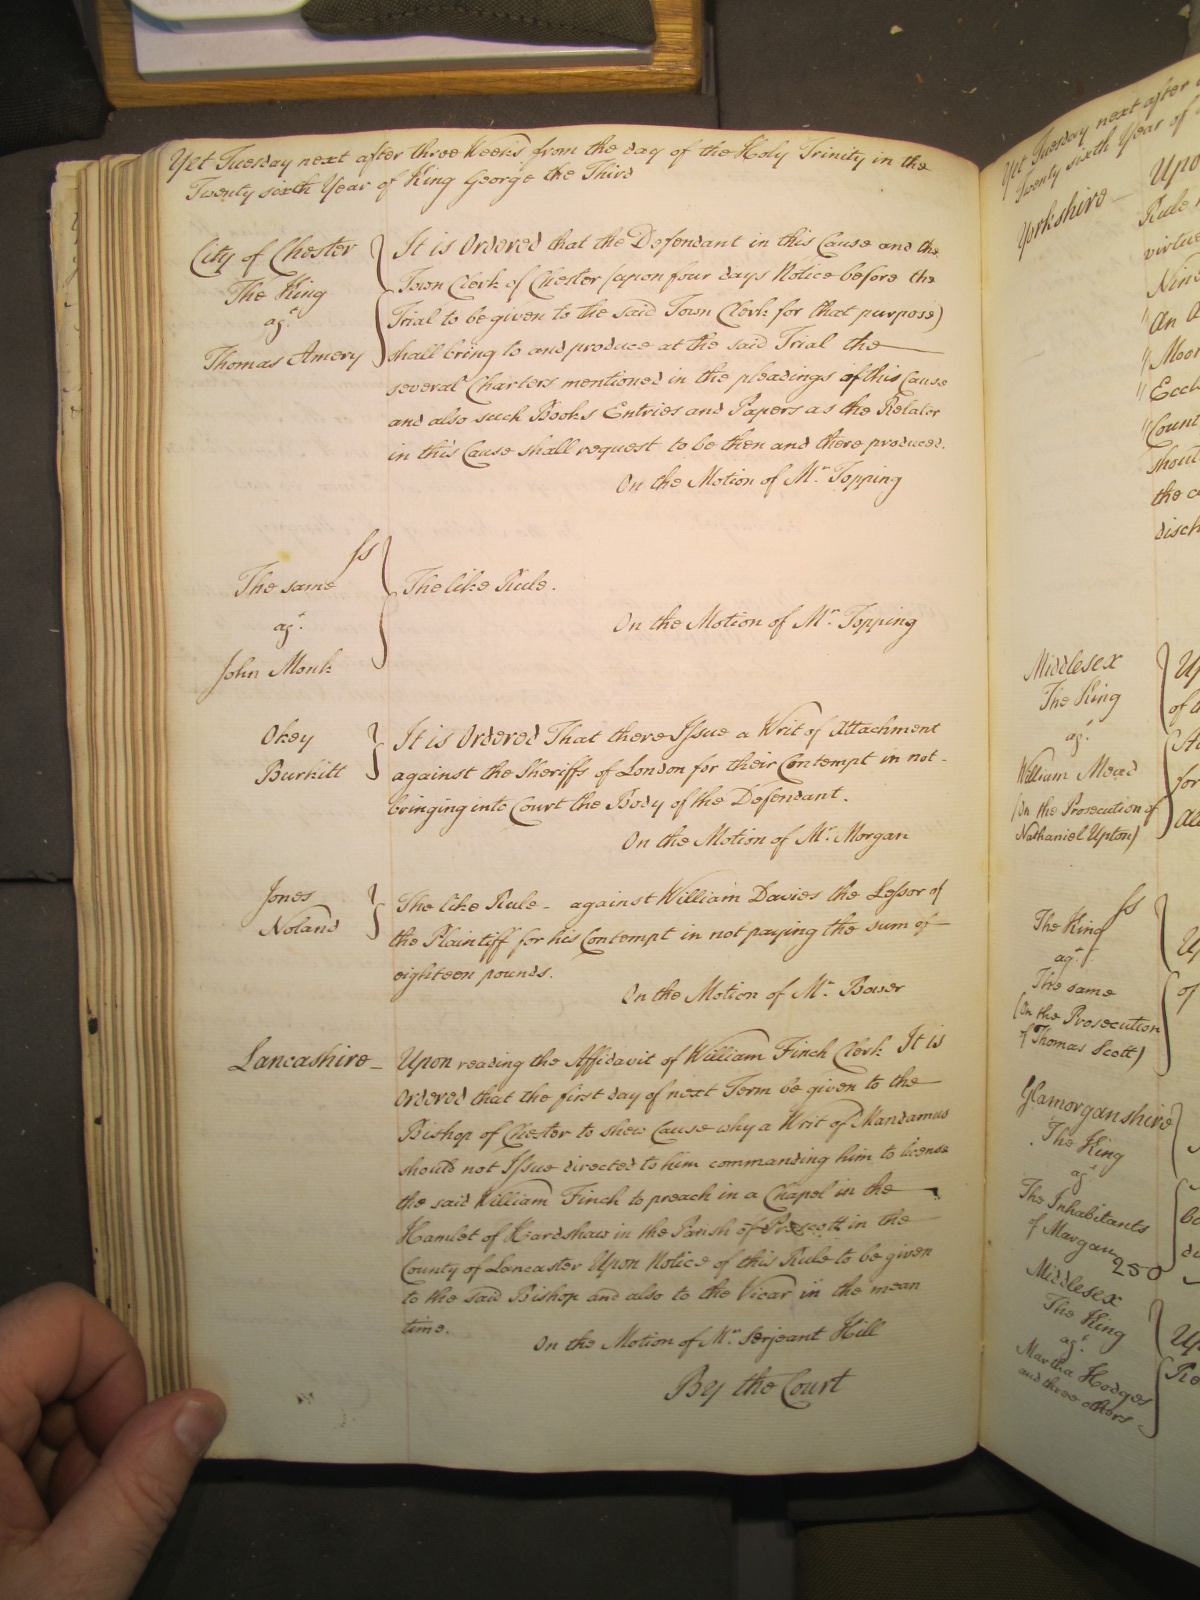 Yet Tuesday next after three Weeks from the day of the Holy Trinity in the
Twenty sixth Year of King George the Third
City of Chester
The King
agt.
Thomas Amery
It is Ordered that the Defendant in this Cause and the
Town Clerk of Chester (upon four days Notice before the
Trial to be given to the said Town Clerk for that purpose)
shall bring to and produce at the said Trial the
several Charters mentioned in the pleadings of this Cause
and also such Books Entries and Papers as the Relator
in this Cause shall request to be then and there produced.
On the Motion of Mr. Topping
ss
The same
agt.
John Monk
The like Rule.
On the Motion of Mr. Topping
Okey
Burkitt
It is Ordered That there Issue a Writ of Attachment
against the Sheriffs of London for their Contempt in not
bringing into Court the Body of the Defendant.
On the Motion of Mr. Morgan
Jones
Noland
The like Rule - against William Davies the Lessor of
the Plaintiff for his Contempt in not paying the sum of
eighteen pounds.
On the Motion of Mr. Bower
Lancashire
Upon reading the Affidavit of William Finch Clerk It is
Ordered that the first day of next Term be given to the
Bishop of Chester to shew Cause why a Writ of Mandamus
should not Issue directed to him commanding him to license
the said William Finch to preach in a Chapel in the
Hamlet of Hardshaw in the Parish of Prescott in the
County of Lancaster Upon Notice of this Rule to be given
to the said Bishop and also to the Vicar in the mean
time.
On the Motion of Mr. Serjeant Hill
By the Court
Yet Tuesday next after
Twenty sixth Year of
Yorkshire
Rule
the
Middlesex
The King
agt.
William Mead
(On the Prosecution of
Nathaniel Upton)
of
for
ss
The King
agt.
The same
(On the Prosecution
of Thomas Scott)
of
Glamorganshire
The King
agt.
The Inhabitants
of Margam
250
Middlesex
The King
agt.
Martha Hodges
and three others